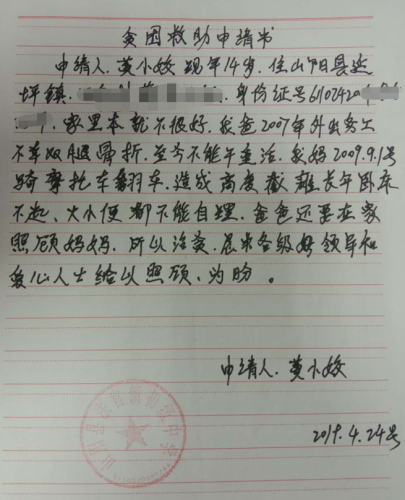 贫困救助申请书
申请人.黄小姣 现年14岁.住山阳县延
坪镇. .身份证号6102420
.家里本就不很好.我爸2007年外出务工
不幸双腿骨折.至今不能干重活.我妈2009.9.1号
骑摩托车翻车.造成高度截瘫长年卧床
不起、大小便都不能自理.爸爸还要在家
照顾妈妈.所以 .恳求各级好领导和
爱心人士给以照顾.为盼。
申请人.黄小姣
2019.4.24号